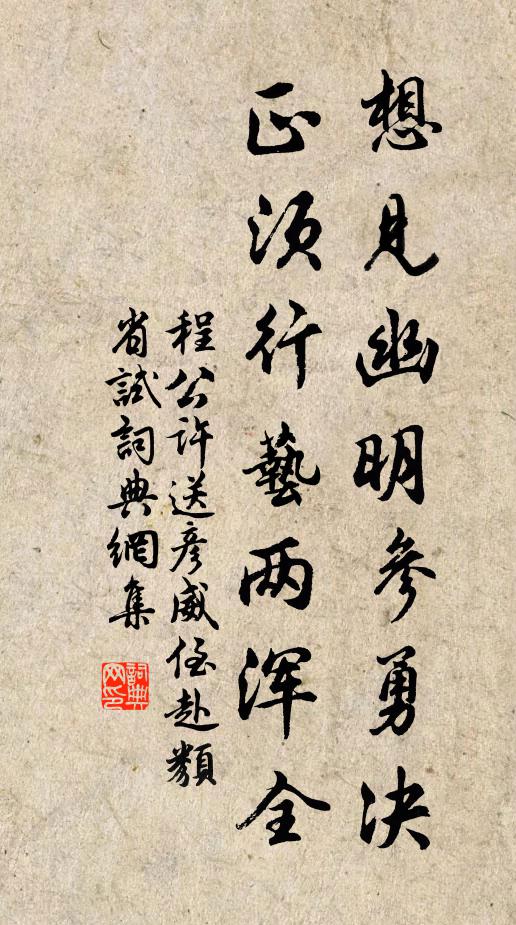 想見幽明參勇决
正須行藝两浑全
程公許送彦威侄赴類
省試詞典網集
詞典网印